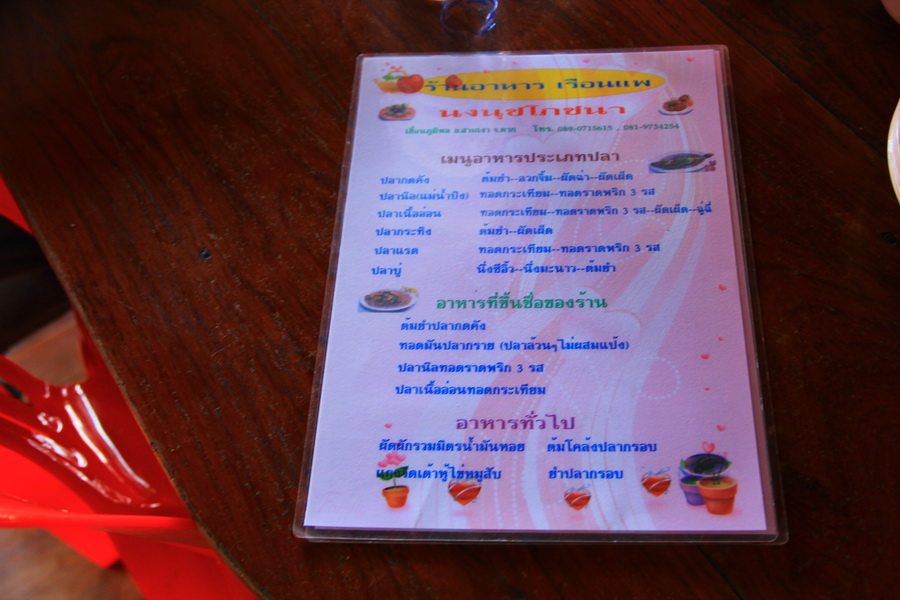 ร้านอาหาร เรือนแพ
นงนุชโภชนา
เขื่อนภูมิพล อ.สามเงา จ.ตาก โทร. 089-0715615 , 081-9734254
เมนูอาหารประเภทปลา
ปลากดคัง ต้มยำ--ลวกจิ้ม--ผัดฉ่า--ผัดเผ็ด
ปลานิล(แม่น้ำปิง) ทอดกระเทียม--ทอดราดพริก 3 รส
ปลาเนื้ออ่อน ทอดกระเทียม--ทอดราดพริก 3 รส--ผัดเผ็ด--ฉู่ฉี่
ปลากระทิง ต้มยำ--ผัดเผ็ด
ปลาแรด ทอดกระเทียม--ทอดราดพริก 3 รส
ปลาบู่ นึ่งซีอิ้ว--นึ่งมะนาว--ต้มยำ
อาหารที่ขึ้นชื่อของร้าน
ต้มยำปลากดคัง
ทอดมันปลากราย (ปลาล้วนๆไม่ผสมแป้ง)
ปลานิลทอดราดพริก 3 รส
ปลาเนื้ออ่อนทอดกระเทียม
อาหารทั่วไป
ผัดผักรวมมิตรน้ำมันหอย ต้มโคล้งปลากรอบ
แกงจืดเต้าหู้ไข่หมูสับ ยำปลากรอบ